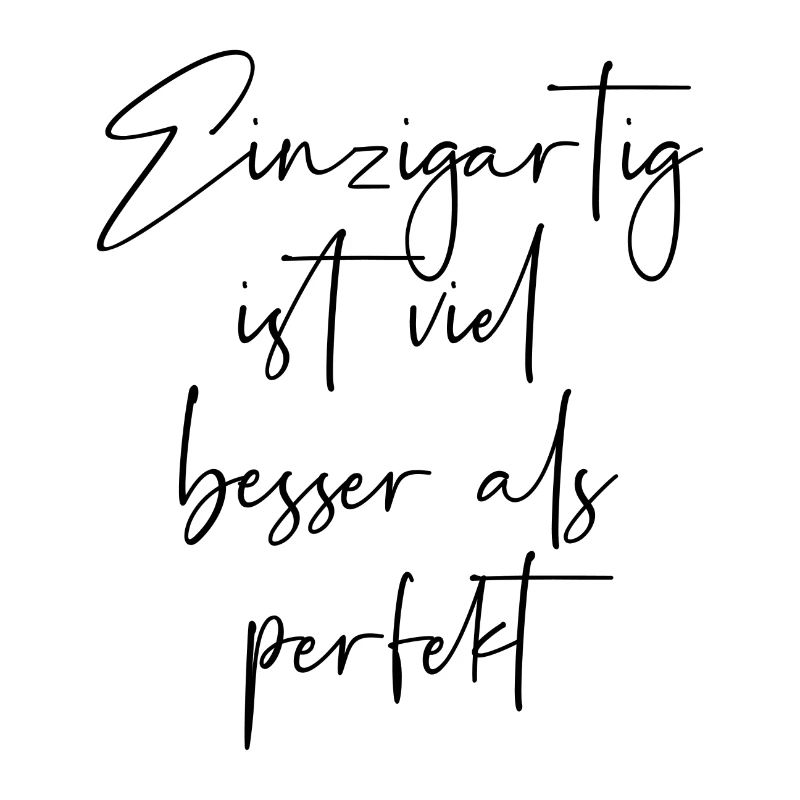 Einzigartig
ist viel
besser als
perfekt